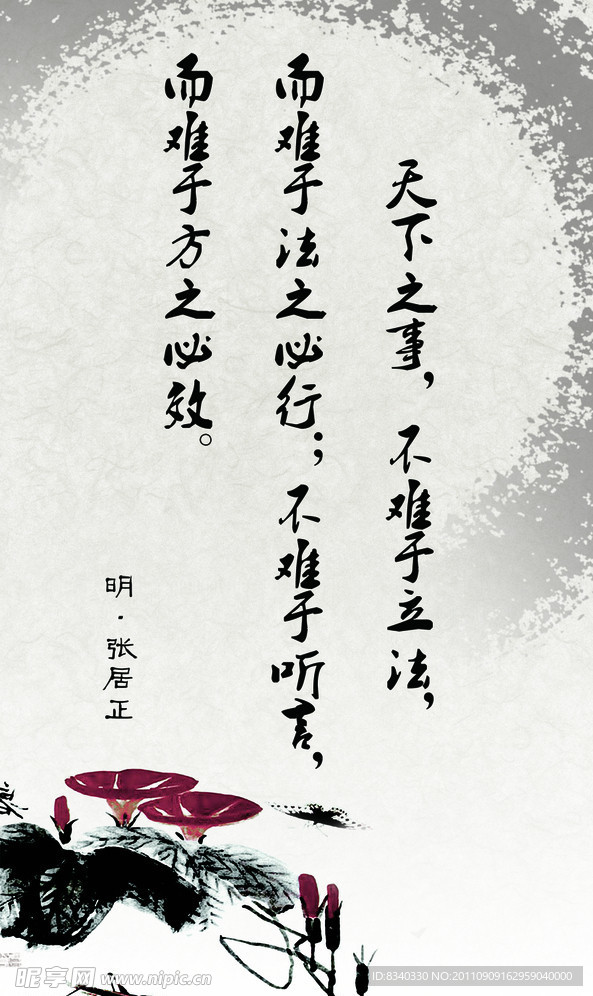 天下之事，不难于立法，
而难于法之必行；不难于听言，
而难于方之必效。
明·张居正
昵享网 www.nipic.cn
ID:8340330 NO:20110909162959040000